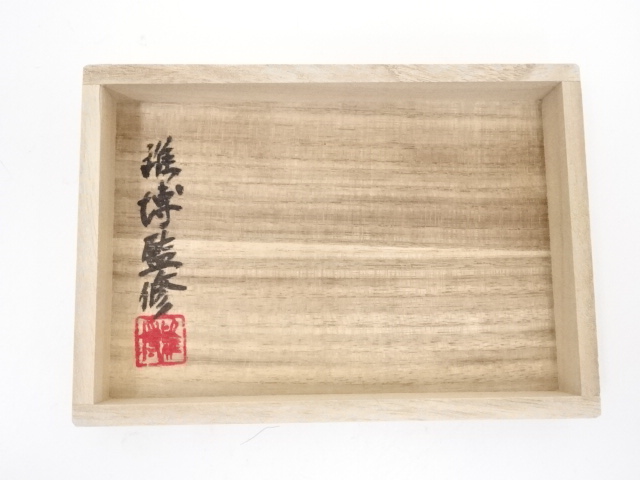 雅博監修